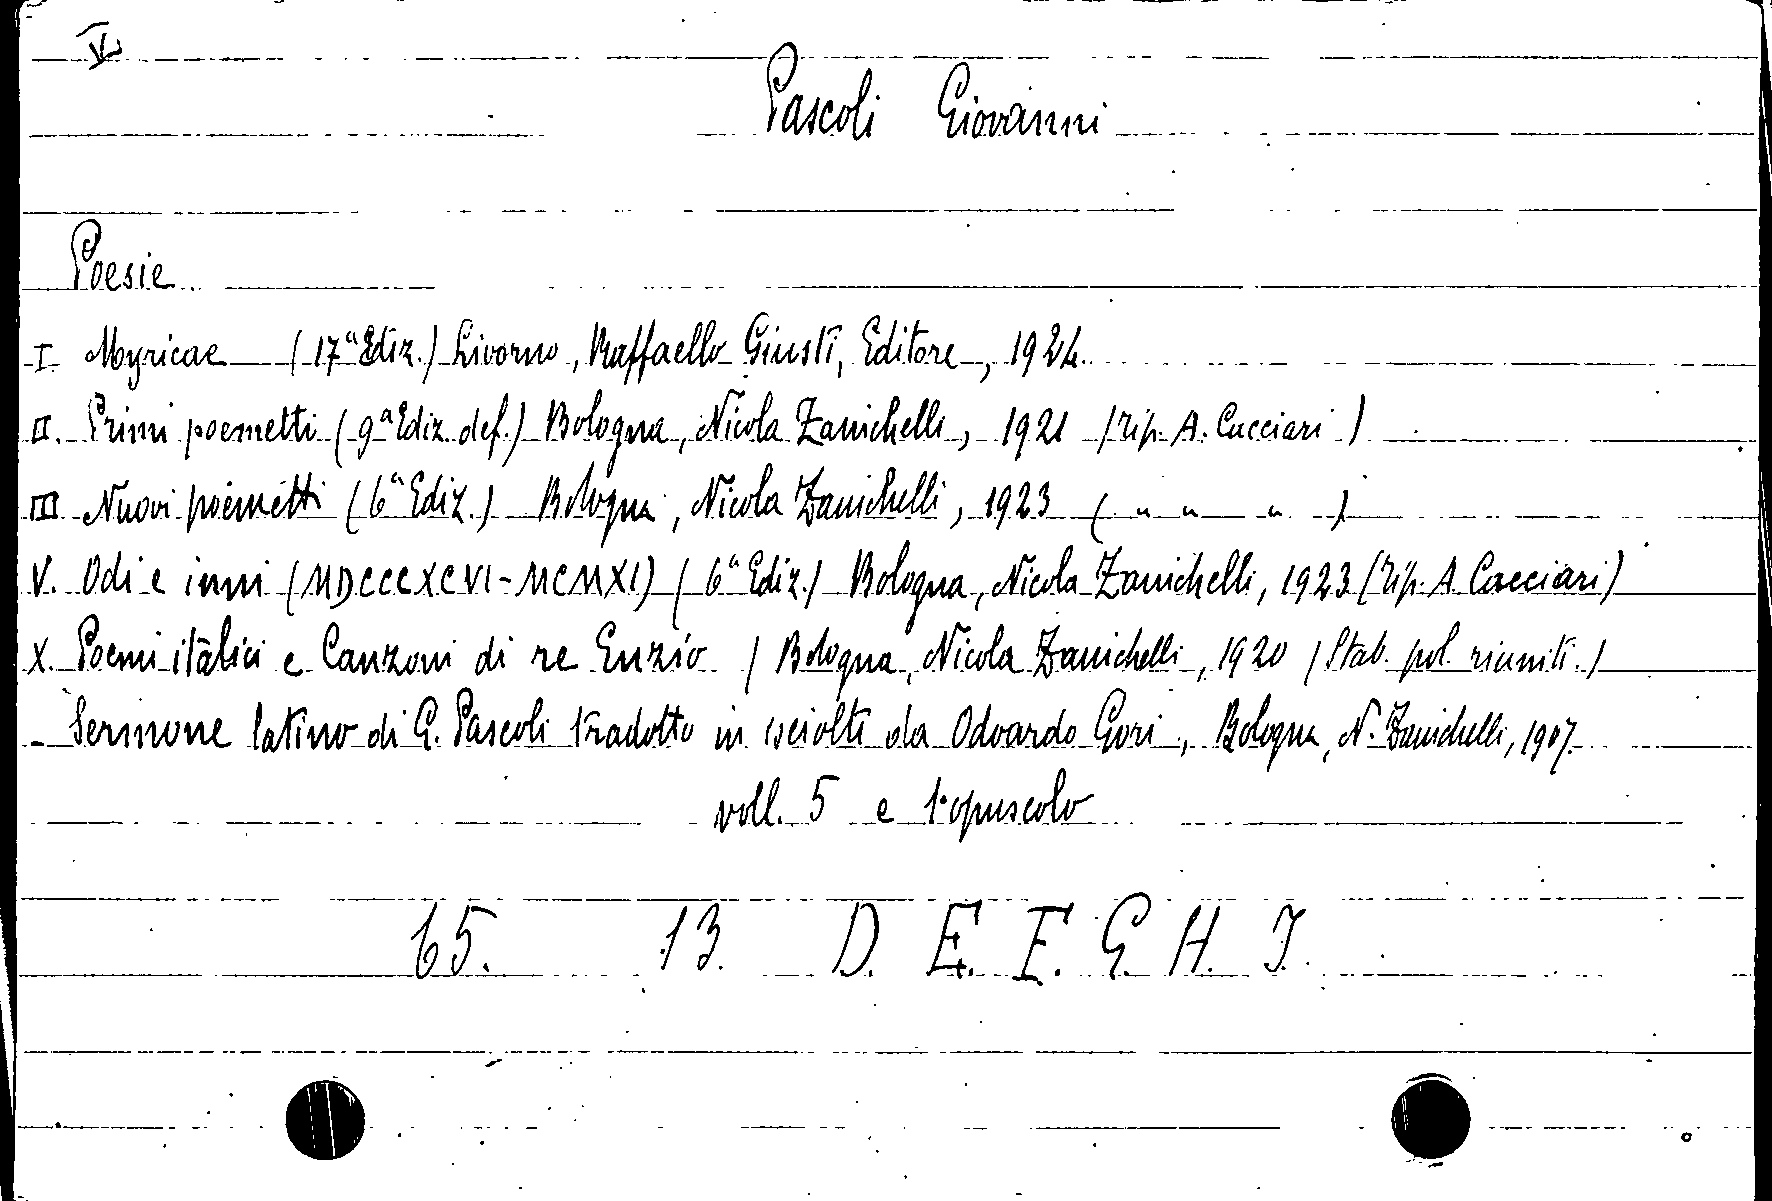 V
Pascoli Giovanni
Poesie
I Myricae (17ª Ediz.) Livorno, Raffaello Giusti, Editore, 1924.
II. Primi poemetti (9ª Ediz. def.) Bologna, Nicola Zanichelli, 1921 (rip. A. Cacciari)
III Nuovi poemetti (6ª Ediz.) Bologna, Nicola Zanichelli, 1923 ( " " " )
V. Odi e inni (MDCCCXCVI-MCMXI) (6ª Ediz.) Bologna, Nicola Zanichelli, 1923 (rip. A. Cacciari)
X. Poemi italici e Canzoni di re Enzio / Bologna, Nicola Zanichelli, 1920 (Stab. pol. riuniti.)
- Sermone latino di G. Pascoli tradotto in isciolti da Odoardo Gori, Bologna, N. Zanichelli, 1907.
voll. 5 e 1 opuscolo
65. 13. D. E. F. G. H. I.